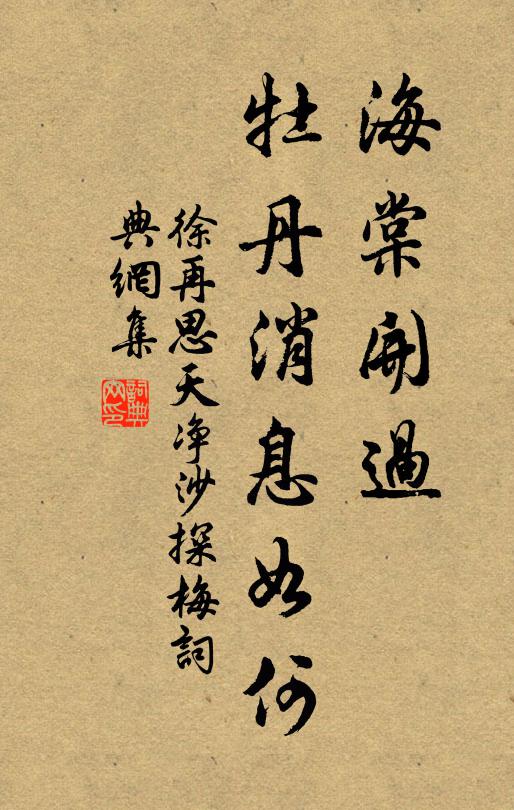 海棠開過
牡丹消息如何
徐再思天净沙探梅詞
典網集
詞典
网印